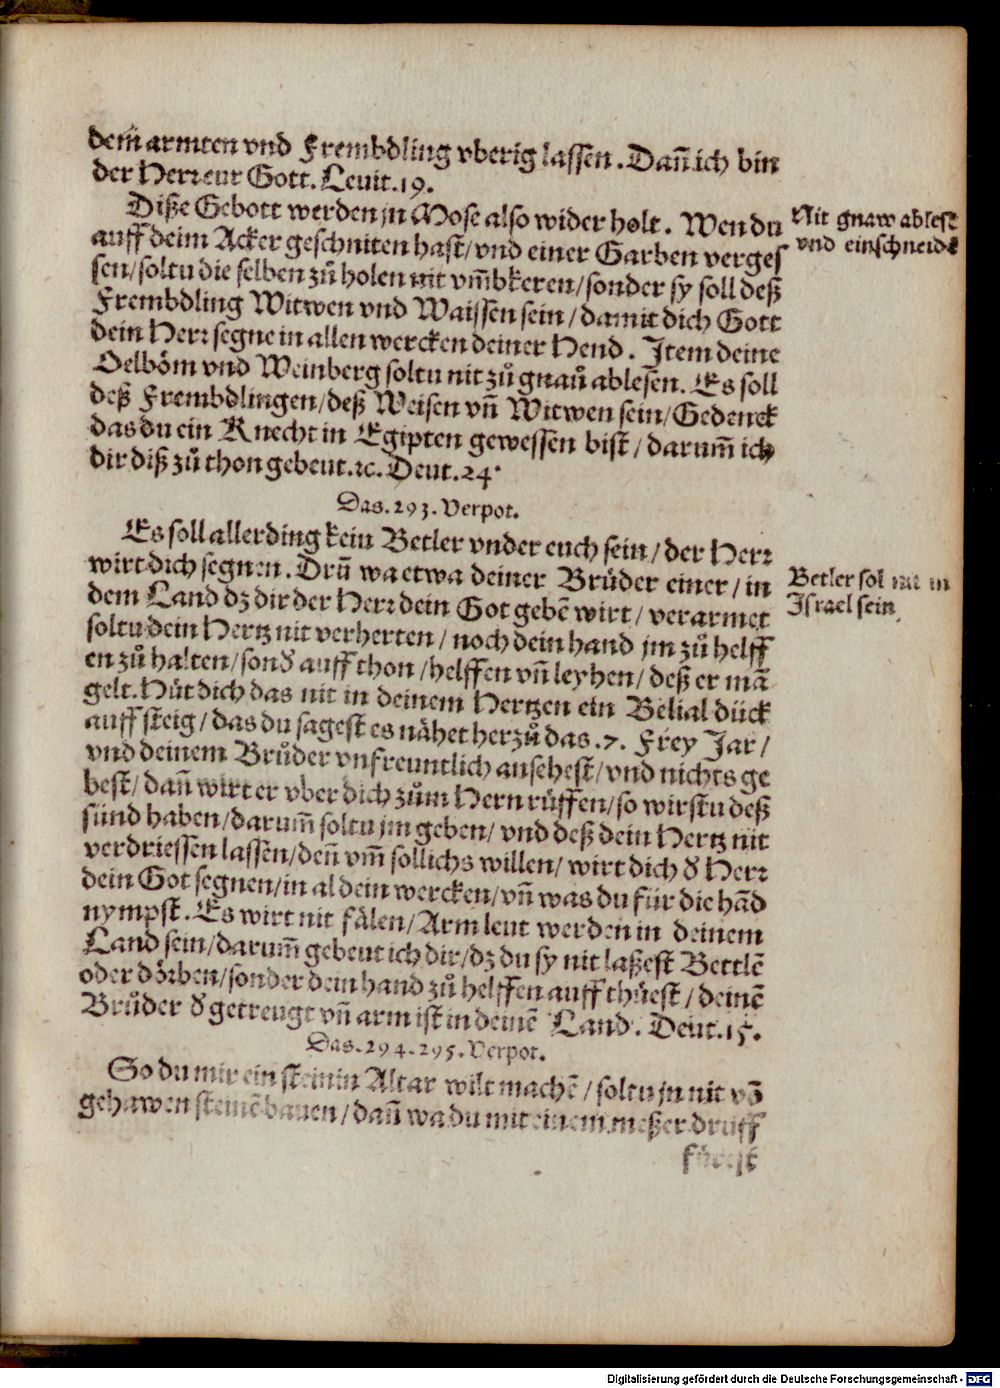 dem̃ armten vnd Frembdling vberig lassen. Dañ ich bin
der Herr eur Gott. Levit. 19.
Diße Gebott werden jn Mose also wider holt. Wen du
auff deim Acker geschniten hast/ vnd einer Garben verges
sen/ soltu die selben zů holen nit vm̃bkeren/ sonder sy soll deß
Frembdling Witwen vnd Waissen sein/ damit dich Gott
dein Herr segne in allen wercken deiner Hend. Item deine
Oelböm vnd Weinberg soltu nit zů gnaů ablesen. Es soll
deß Frembdlingen/ deß Weisen vñ Witwen sein/ Gedenck
das du ein Knecht in Egipten gewessen bist/ darum̃ ich
dir diß zů thon gebeut. ꝛc. Deut. 24.
Nit gnaw ablesē
vnd einschneidē
Das. 293. Verpot.
Es soll allerding kein Betler vnder euch sein/ der Herr
wirt dich segnen. Drũ wa etwa deiner Brůder einer/ in
dem Land dz dir der Herr dein Got gebē wirt/ verarmet
soltu dein Hertz nit verherten/ noch dein hand jm zů helff
en zů halten/ sonđ auff thon/ helffen vñ leyhen/ deß er mā
gelt. Hüt dich das nit in deinem Hertzen ein Belial dück
auff steig/ das du sagest es nähet herzů das. 7. Frey Jar/
vnd deinem Brůder vnfreuntlich ansehest/ vnd nichts ge
best/ dañ wirt er vber dich zům Hern rüffen/ so wirstu deß
sünd haben/ darum̃ soltu jm geben/ vnd deß dein Hertz nit
verdriessen lassen/ deñ vm̃ sollichs willen/ wirt dich đ Herr
dein Got segnen/ in al dein wercken/ vñ was du für die hād
nympst. Es wirt nit fälen/ Arm leut werden in deinem
Land sein/ darum̃ gebeut ich dir/ dz du sy nit laßest Bettlē
oder dörben/ sonder dein hand zů helffen auff thüest/ deinē
Brůder đ getrengt vñ arm ist in deinē Land. Deut. 15.
Betler sol nit in
Israel sein.
Das. 294. 295. Verpot.
So du mir ein steinin Altar wilt machē/ soltu jn nit vō
gehawen steinē bauen/ dañ wa du mit einem meßer druff
fürest
Digitalisierung gefördert durch die Deutsche Forschungsgemeinschaft - DFG